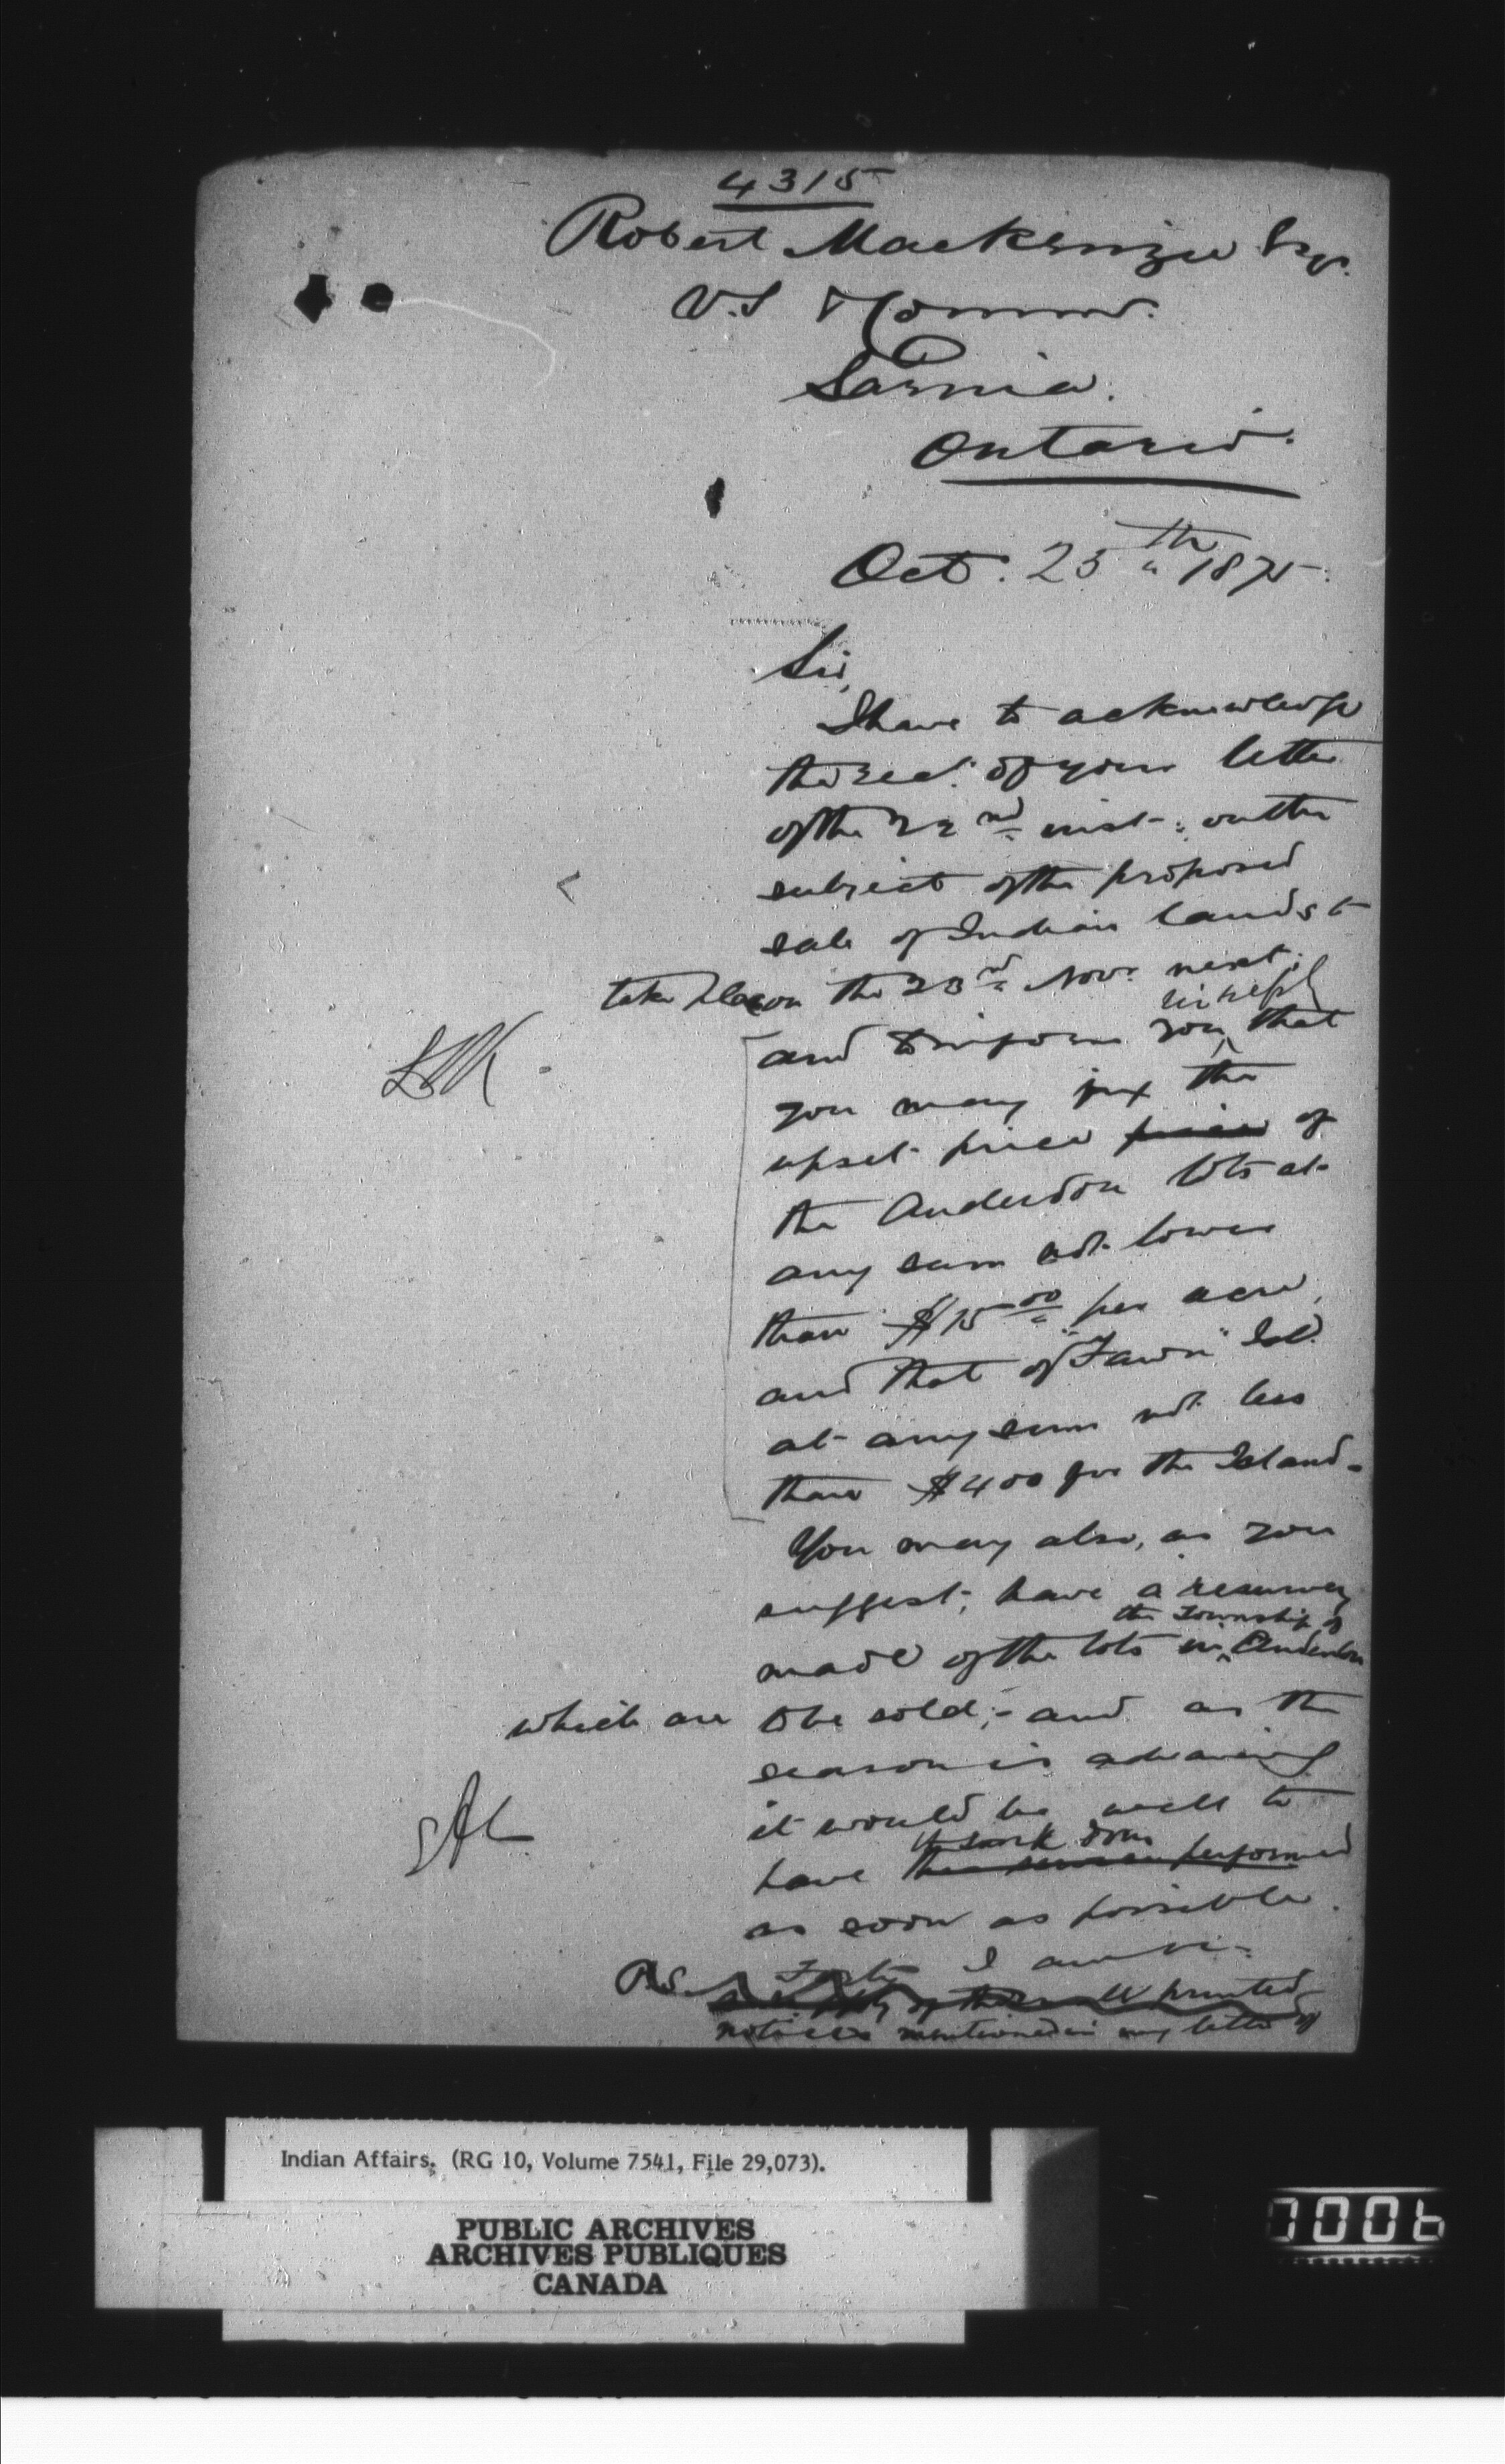 4315
Robert Mackenzie Esqr.
V.S & Commr.
Sarnia.
Ontario.
Oct. 25th 1875.
Sir,
I have to acknowledge
the rect. of your letter
of the 22nd inst. on the
subject of the proposed
sale of Indian lands to
take place on the 23rd Novr. next;
in reply
and to inform you that
you may fix the
upset price price of
the Anderdon lots at
any sum not lower
than $15.00 per acre,
and that of "Fawn" Isld.
at any sum not less
than $400 for the Island.
You may also, as you
suggest, have a resurvey
the Township of
made of the lots in Anderdon
which are to be sold; and as the
season is advancing
it would be well to
work done
have the performed
as soon as possible.
I am
P.S.
of the printed
notices mentioned in my letter of
Indian Affairs. (RG 10, Volume 7541, File 29,073).
PUBLIC ARCHIVES
ARCHIVES PUBLIQUES
CANADA